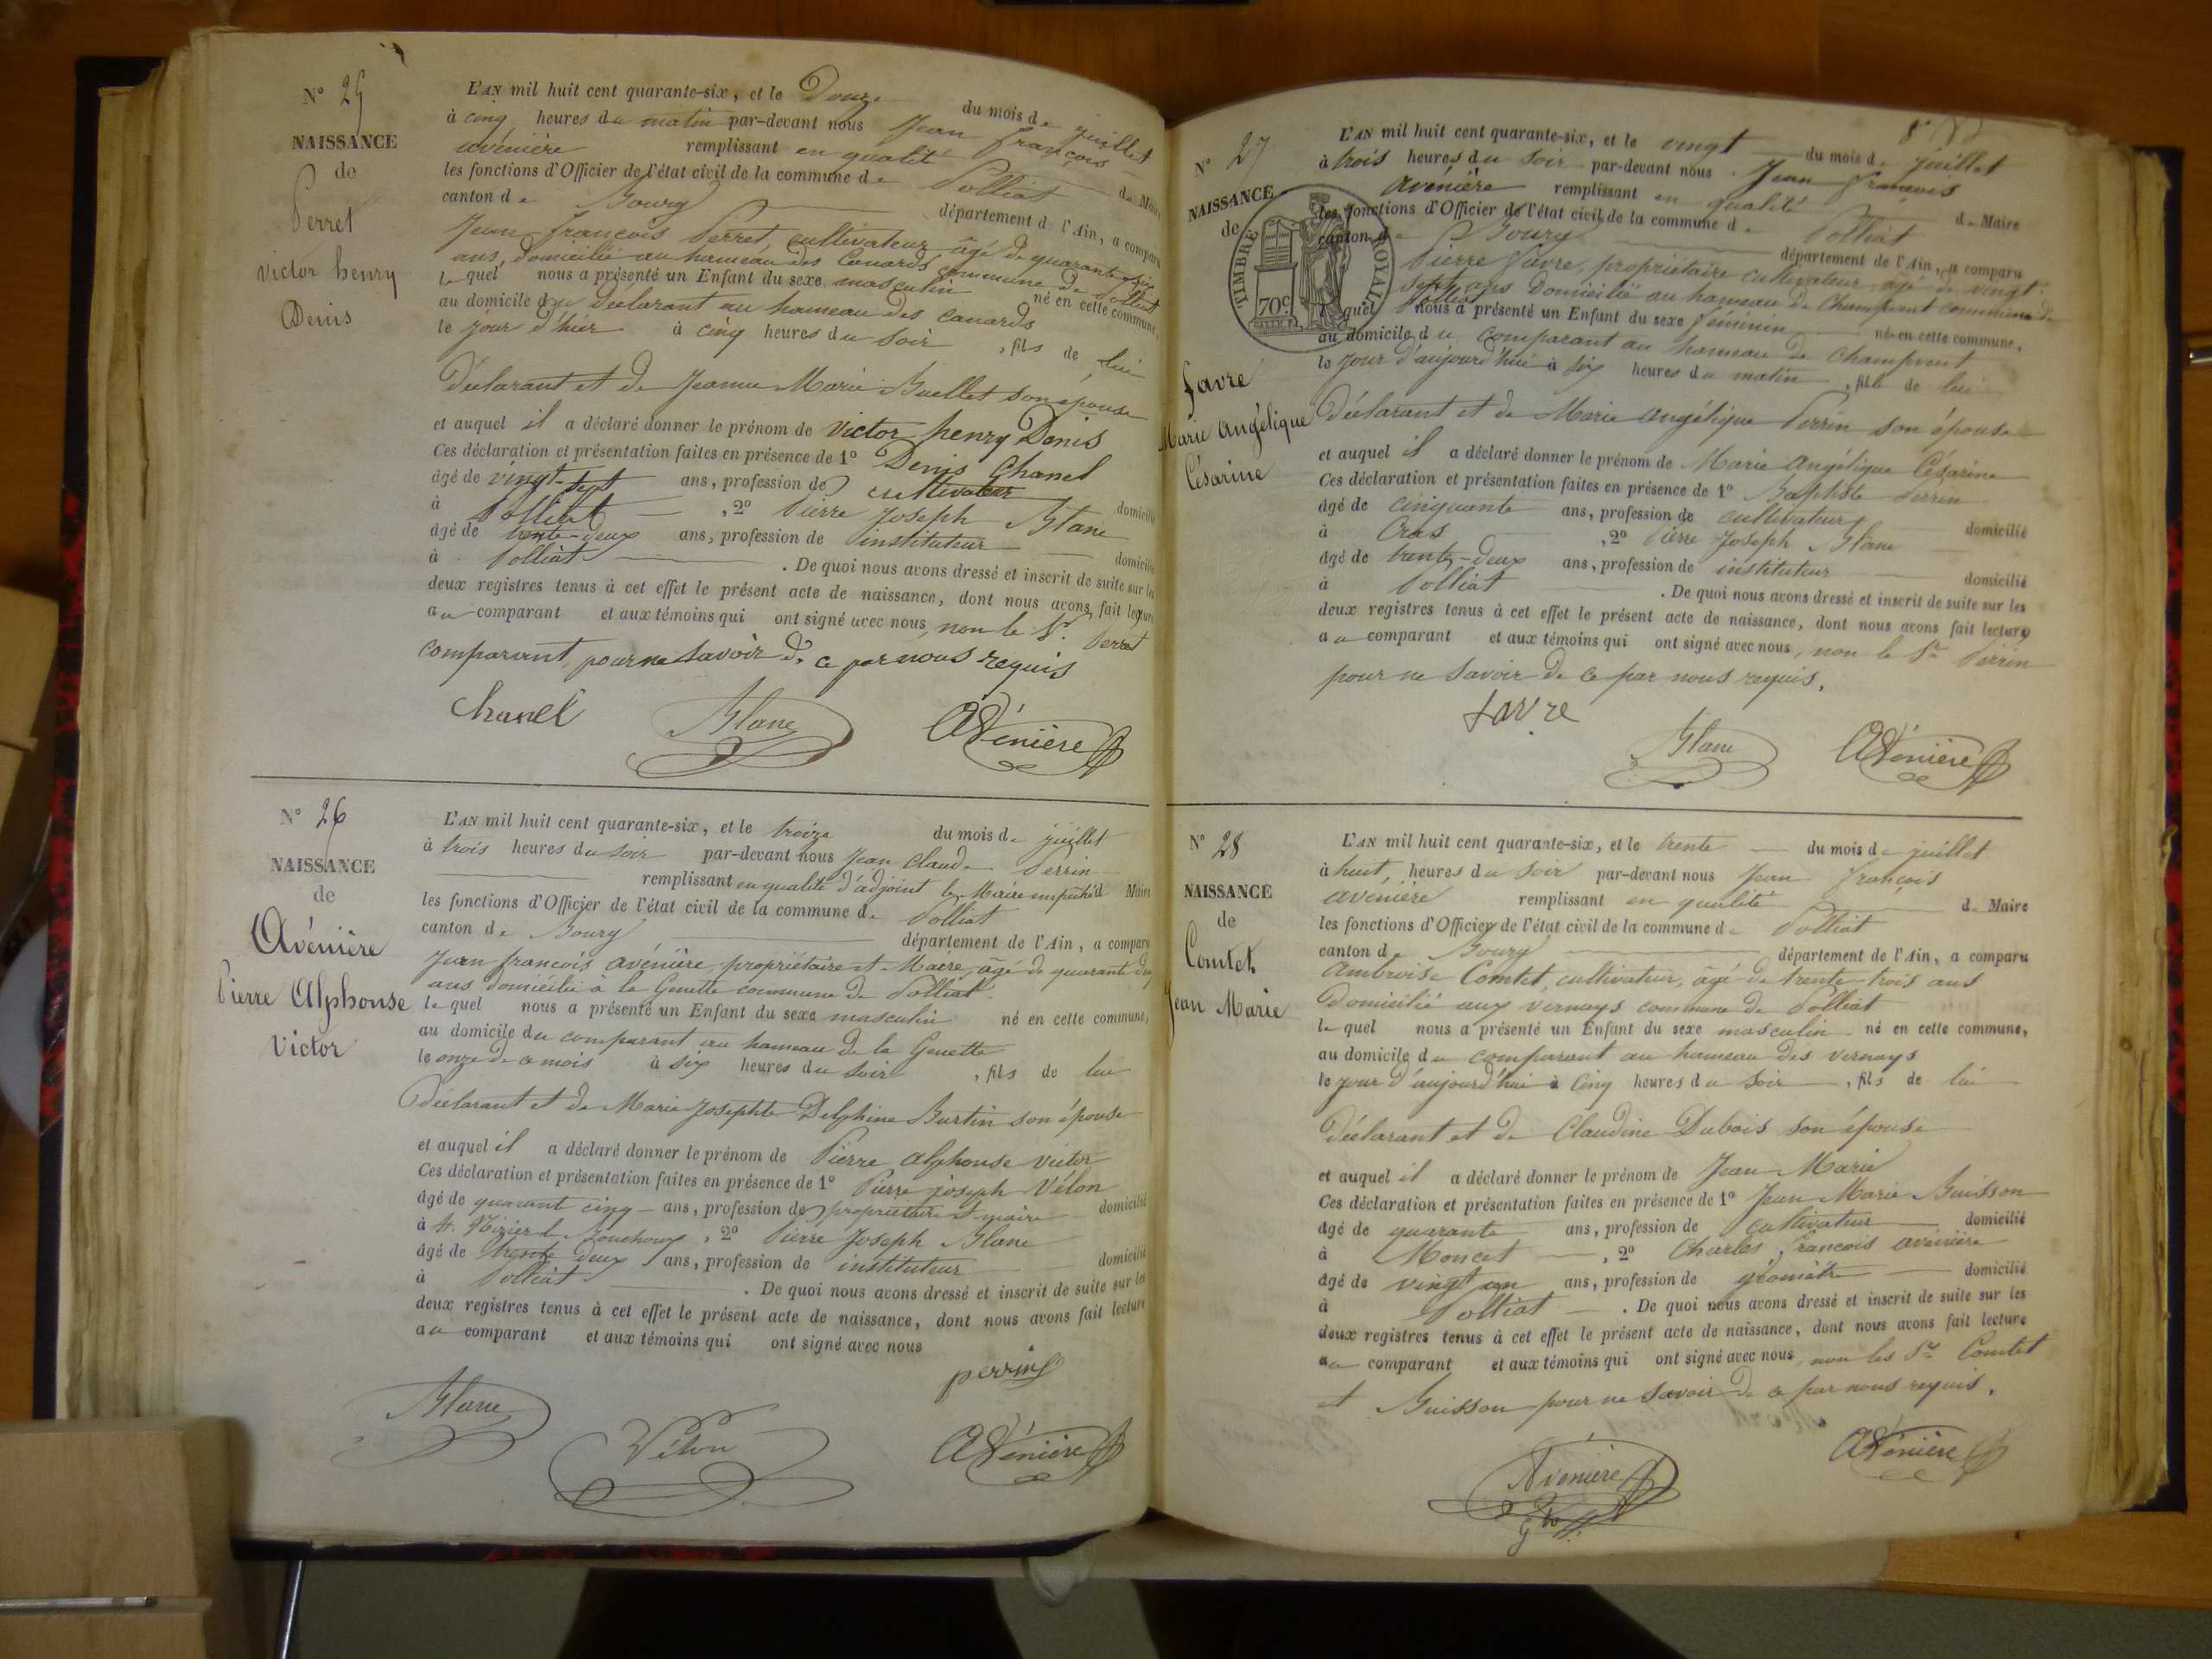 N° 25
NAISSANCE
de
Perret
Victor henry
Denis
L'AN mil huit cent quarante-six, et le Douze du mois de juillet
à cinq heures du matin par-devant nous Jean françois
avénière remplissant en qualité de Maire
les fonctions d'Officier de l'état civil de la commune de Polliat
canton de Bourg département de l'Ain, a comparu
Jean françois Perret, cultivateur âgé de quarante six
ans, domicilié au hameau des Canards commune de Polliat
lequel nous a présenté un Enfant du sexe masculin né en cette commune,
au domicile du Déclarant au hameau des canards
le jour d'hier à cinq heures du soir, fils de lui
Déclarant et de Jeanne Marie Buellet son épouse
et auquel il a déclaré donner le prénom de Victor henry Denis
Ces déclaration et présentation faites en présence de 1° Denis Chanel
âgé de vingt-sept ans, profession de cultivateur domicilié
à Polliat, 2° Pierre Joseph Blanc
âgé de trente-deux ans, profession de instituteur domicilié
à Polliat. De quoi nous avons dressé et inscrit de suite sur les
deux registres tenus à cet effet le présent acte de naissance, dont nous avons fait lecture
au comparant et aux témoins qui ont signé avec nous, non le Sr. Perret
comparant, pour ne savoir de ce par nous requis
Chanel Blanc Avénière
N° 26
NAISSANCE
de
Avénière
Pierre Alphonse
Victor
L'AN mil huit cent quarante-six, et le treize du mois de juillet
à trois heures du soir par-devant nous Jean Claude Perrin
remplissant en qualité d'adjoint le Maire empêché Maire
les fonctions d'Officier de l'état civil de la commune de Polliat
canton de Bourg département de l'Ain, a comparu
Jean françois avénière, propriétaire et Maire, âgé de quarante deux
ans domicilié à la Genette commune de Polliat.
lequel nous a présenté un Enfant du sexe masculin né en cette commune,
au domicile du comparant au hameau de la Genette
le onze de ce mois à six heures du soir, fils de lui
Déclarant et de Marie Josephte Delphine Burtin son épouse
et auquel il a déclaré donner le prénom de Pierre alphonse victor
Ces déclaration et présentation faites en présence de 1° Pierre joseph Vélon
âgé de quarant cinq ans, profession de propriétaire et maire domicilié
à St. Nizier le Bouchoux, 2° Pierre Joseph Blanc
âgé de trente deux ans, profession de instituteur domicilié
à Polliat. De quoi nous avons dressé et inscrit de suite sur les
deux registres tenus à cet effet le présent acte de naissance, dont nous avons fait lecture
au comparant et aux témoins qui ont signé avec nous
perrin
Blanc Vélon Avénière
N° 27
NAISSANCE
de
favre
Marie Angélique
Césarine
TIMBRE ROYAL
70c
L'AN mil huit cent quarante-six, et le vingt du mois de juillet
à trois heures du soir par-devant nous Jean françois
avénière remplissant en qualité de Maire
les fonctions d'Officier de l'état civil de la commune de Polliat
canton de Bourg département de l'Ain, a comparu
Pierre favre, propriétaire cultivateur âgé de vingt
sept ans domicilié au hameau de Champvent commune de
Polliat
lequel nous a présenté un Enfant du sexe féminin née en cette commune,
au domicile du comparant au hameau de Champvent
le jour d'aujourd'hui à six heures du matin, fille de lui
Déclarant et de Marie angélique Perrin son épouse
et auquel il a déclaré donner le prénom de Marie angélique Césarine
Ces déclaration et présentation faites en présence de 1° Baptiste Perrin
âgé de cinquante ans, profession de cultivateur domicilié
à Cras, 2° Pierre Joseph Blanc
âgé de trente-deux ans, profession de instituteur domicilié
à Polliat. De quoi nous avons dressé et inscrit de suite sur les
deux registres tenus à cet effet le présent acte de naissance, dont nous avons fait lecture
au comparant et aux témoins qui ont signé avec nous, non le Sr. Perrin
pour ne savoir de ce par nous requis.
favre
Blanc Avénière
N° 28
NAISSANCE
de
Comtet
Jean Marie
L'AN mil huit cent quarante-six, et le trente du mois de juillet
à huit, heures du soir par-devant nous Jean françois
avénière remplissant en qualité de Maire
les fonctions d'Officier de l'état civil de la commune de Polliat
canton de Bourg département de l'Ain, a comparu
Ambroise Comtet, cultivateur, âgé de trente-trois ans
Domicilié aux vernays commune de Polliat
lequel nous a présenté un Enfant du sexe masculin né en cette commune,
au domicile du comparant au hameau des vernays
le jour d'aujourd'hui à Cinq heures du soir, fils de lui
Déclarant et de Claudine Dubois son épouse
et auquel il a déclaré donner le prénom de Jean Marie
Ces déclaration et présentation faites en présence de 1° Jean Marie Buisson
âgé de quarante ans, profession de cultivateur domicilié
à Moncet, 2° Charles françois avénière
âgé de vingt un ans, profession de géomètre domicilié
à Polliat. De quoi nous avons dressé et inscrit de suite sur les
deux registres tenus à cet effet le présent acte de naissance, dont nous avons fait lecture
au comparant et aux témoins qui ont signé avec nous, non les Srs. Comtet
et Buisson pour ne savoir de ce par nous requis.
Avénière
Avénière